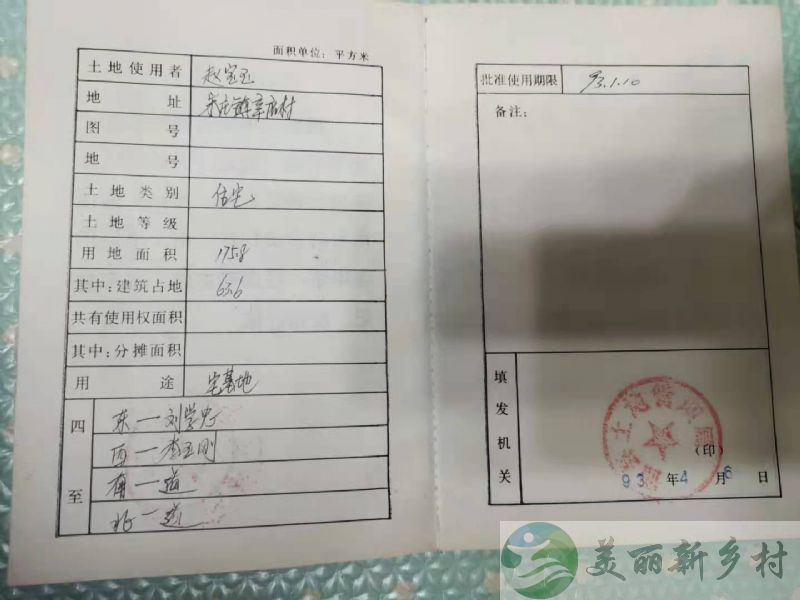 面积单位：平方米
土地使用者 赵宝玉
地址 宋庄 辛店村
图号
地号
土地类别 住宅
土地等级
用地面积 175.8
其中：建筑占地 63.6
共有使用权面积
其中：分摊面积
用途 宅基地
四至
东一刘学
西一李玉刚
南一道
北一道
批准使用期限 93.1.10
备注：
填发机关
土地管理
（印）
93年4月6日
美丽新乡村